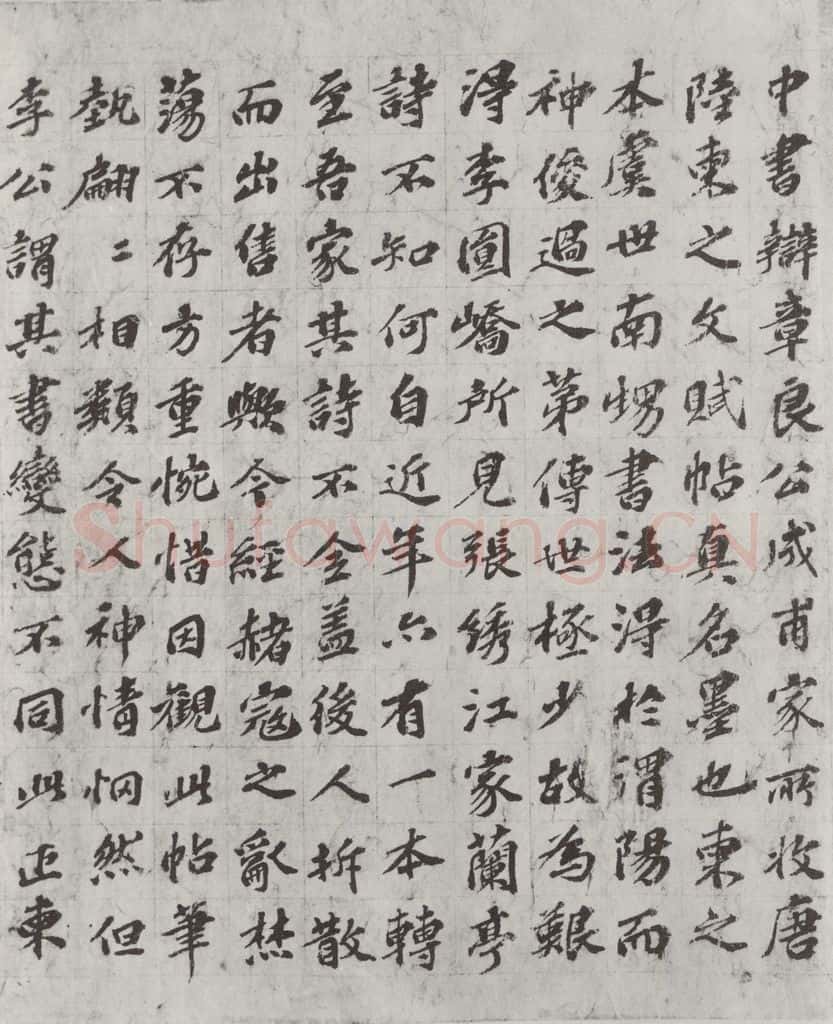 中書辯章良公成甫家所收唐
陸柬之文賦帖真名墨也柬之
本虞世南甥書法得於渭陽而
神俊過之第傳世極少故為艱
得李圓嶠所見張綉江家蘭亭
詩不知何自近年亦有一本轉
至吾家其詩不全盖後人拆散
而出售者歟今經赭寇之亂焚
蕩不存方重惋惜因觀此帖筆
埶翩〻相類令人神情惘然但
李公謂其書變態不同此正柬
Shufawang.CN